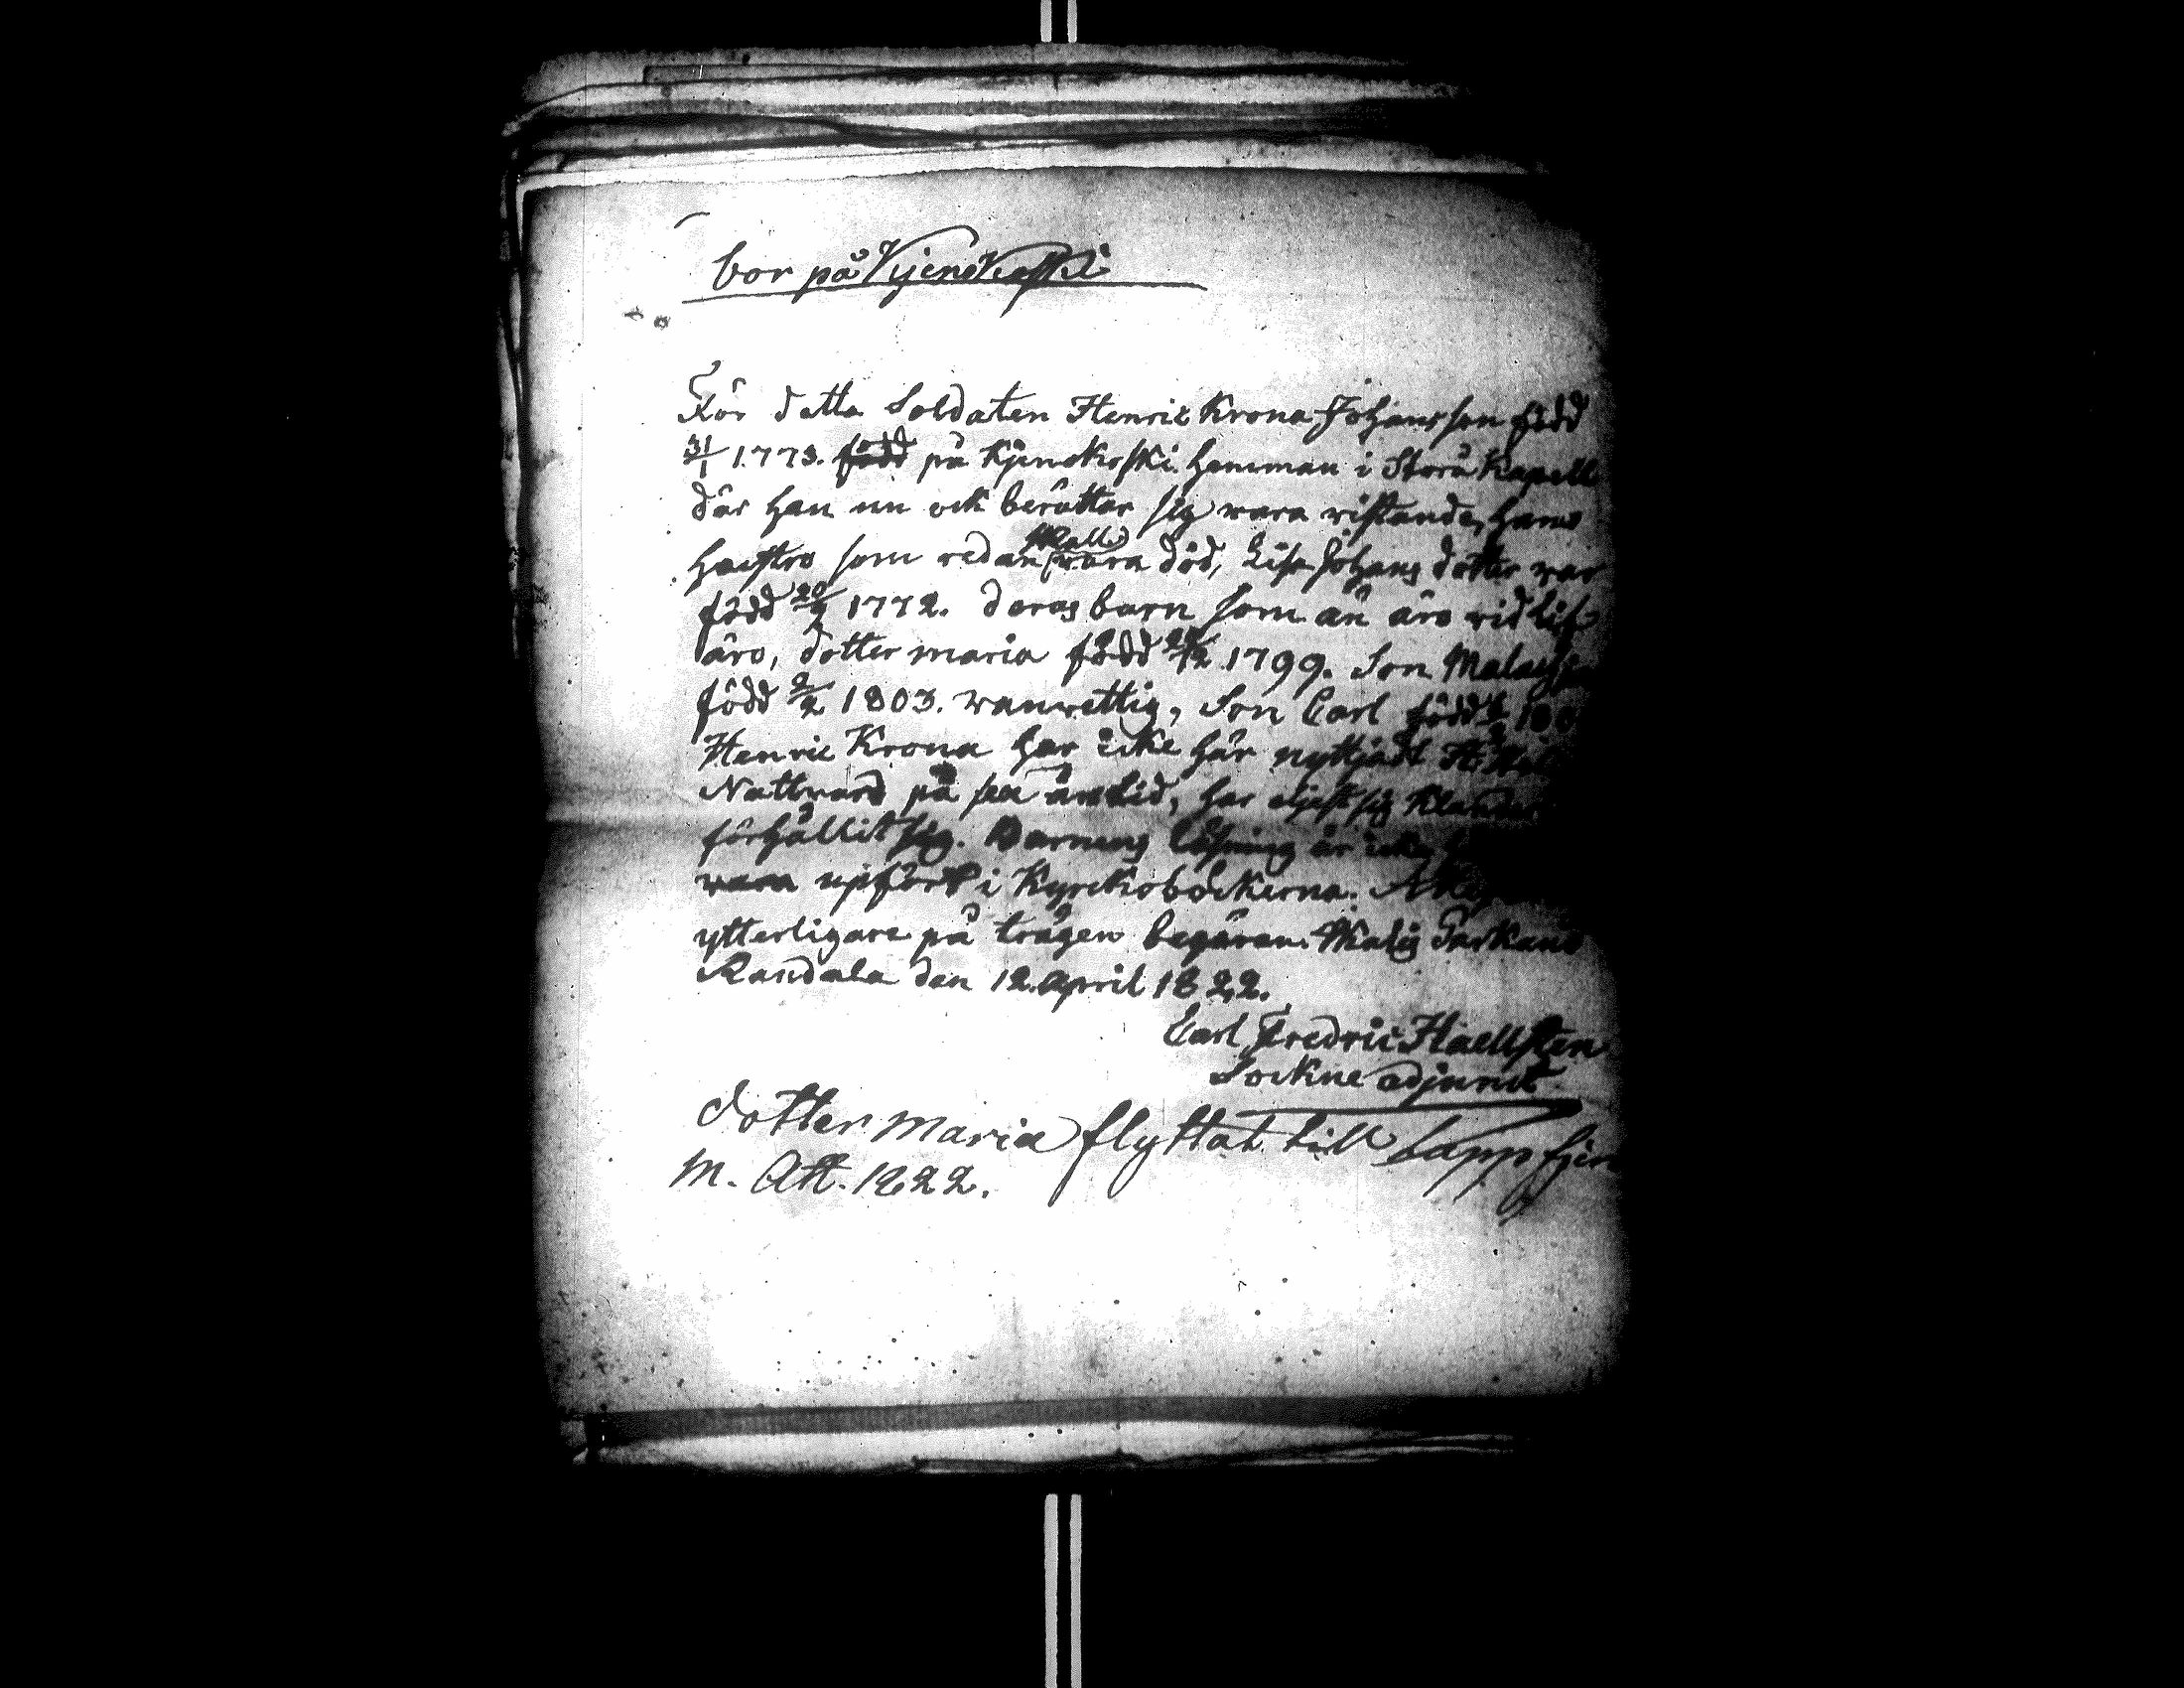 bor på Kjenskoski
För detta Soldaten Henric Krona Johansson född
31/1 1773. född på Kjenskoski hemman i Storå Kapell
där han nu och berättar sig wara wistande, hans
hustro som redan skall wara död, Lisa Johans dotter war
född 20/9 1772. deras barn som än äro wid lif
äro, dotter maria född 1799. Son
född 2/2 1803. wanwettig, Son Carl född
Henric Krona har icke här nyttjadt
Nattward på sex års tid, har eljest sig
förhållit sig. Barnens läsning är icke
wara upfördt i Kyrckoböckerna.
ytterligare på trägen begäran.
den 12. April 1822.
Carl Fredric Haellsten
Sockne adjunct
dotter Maria flyttat till Lappfjer
m. Att. 1822.